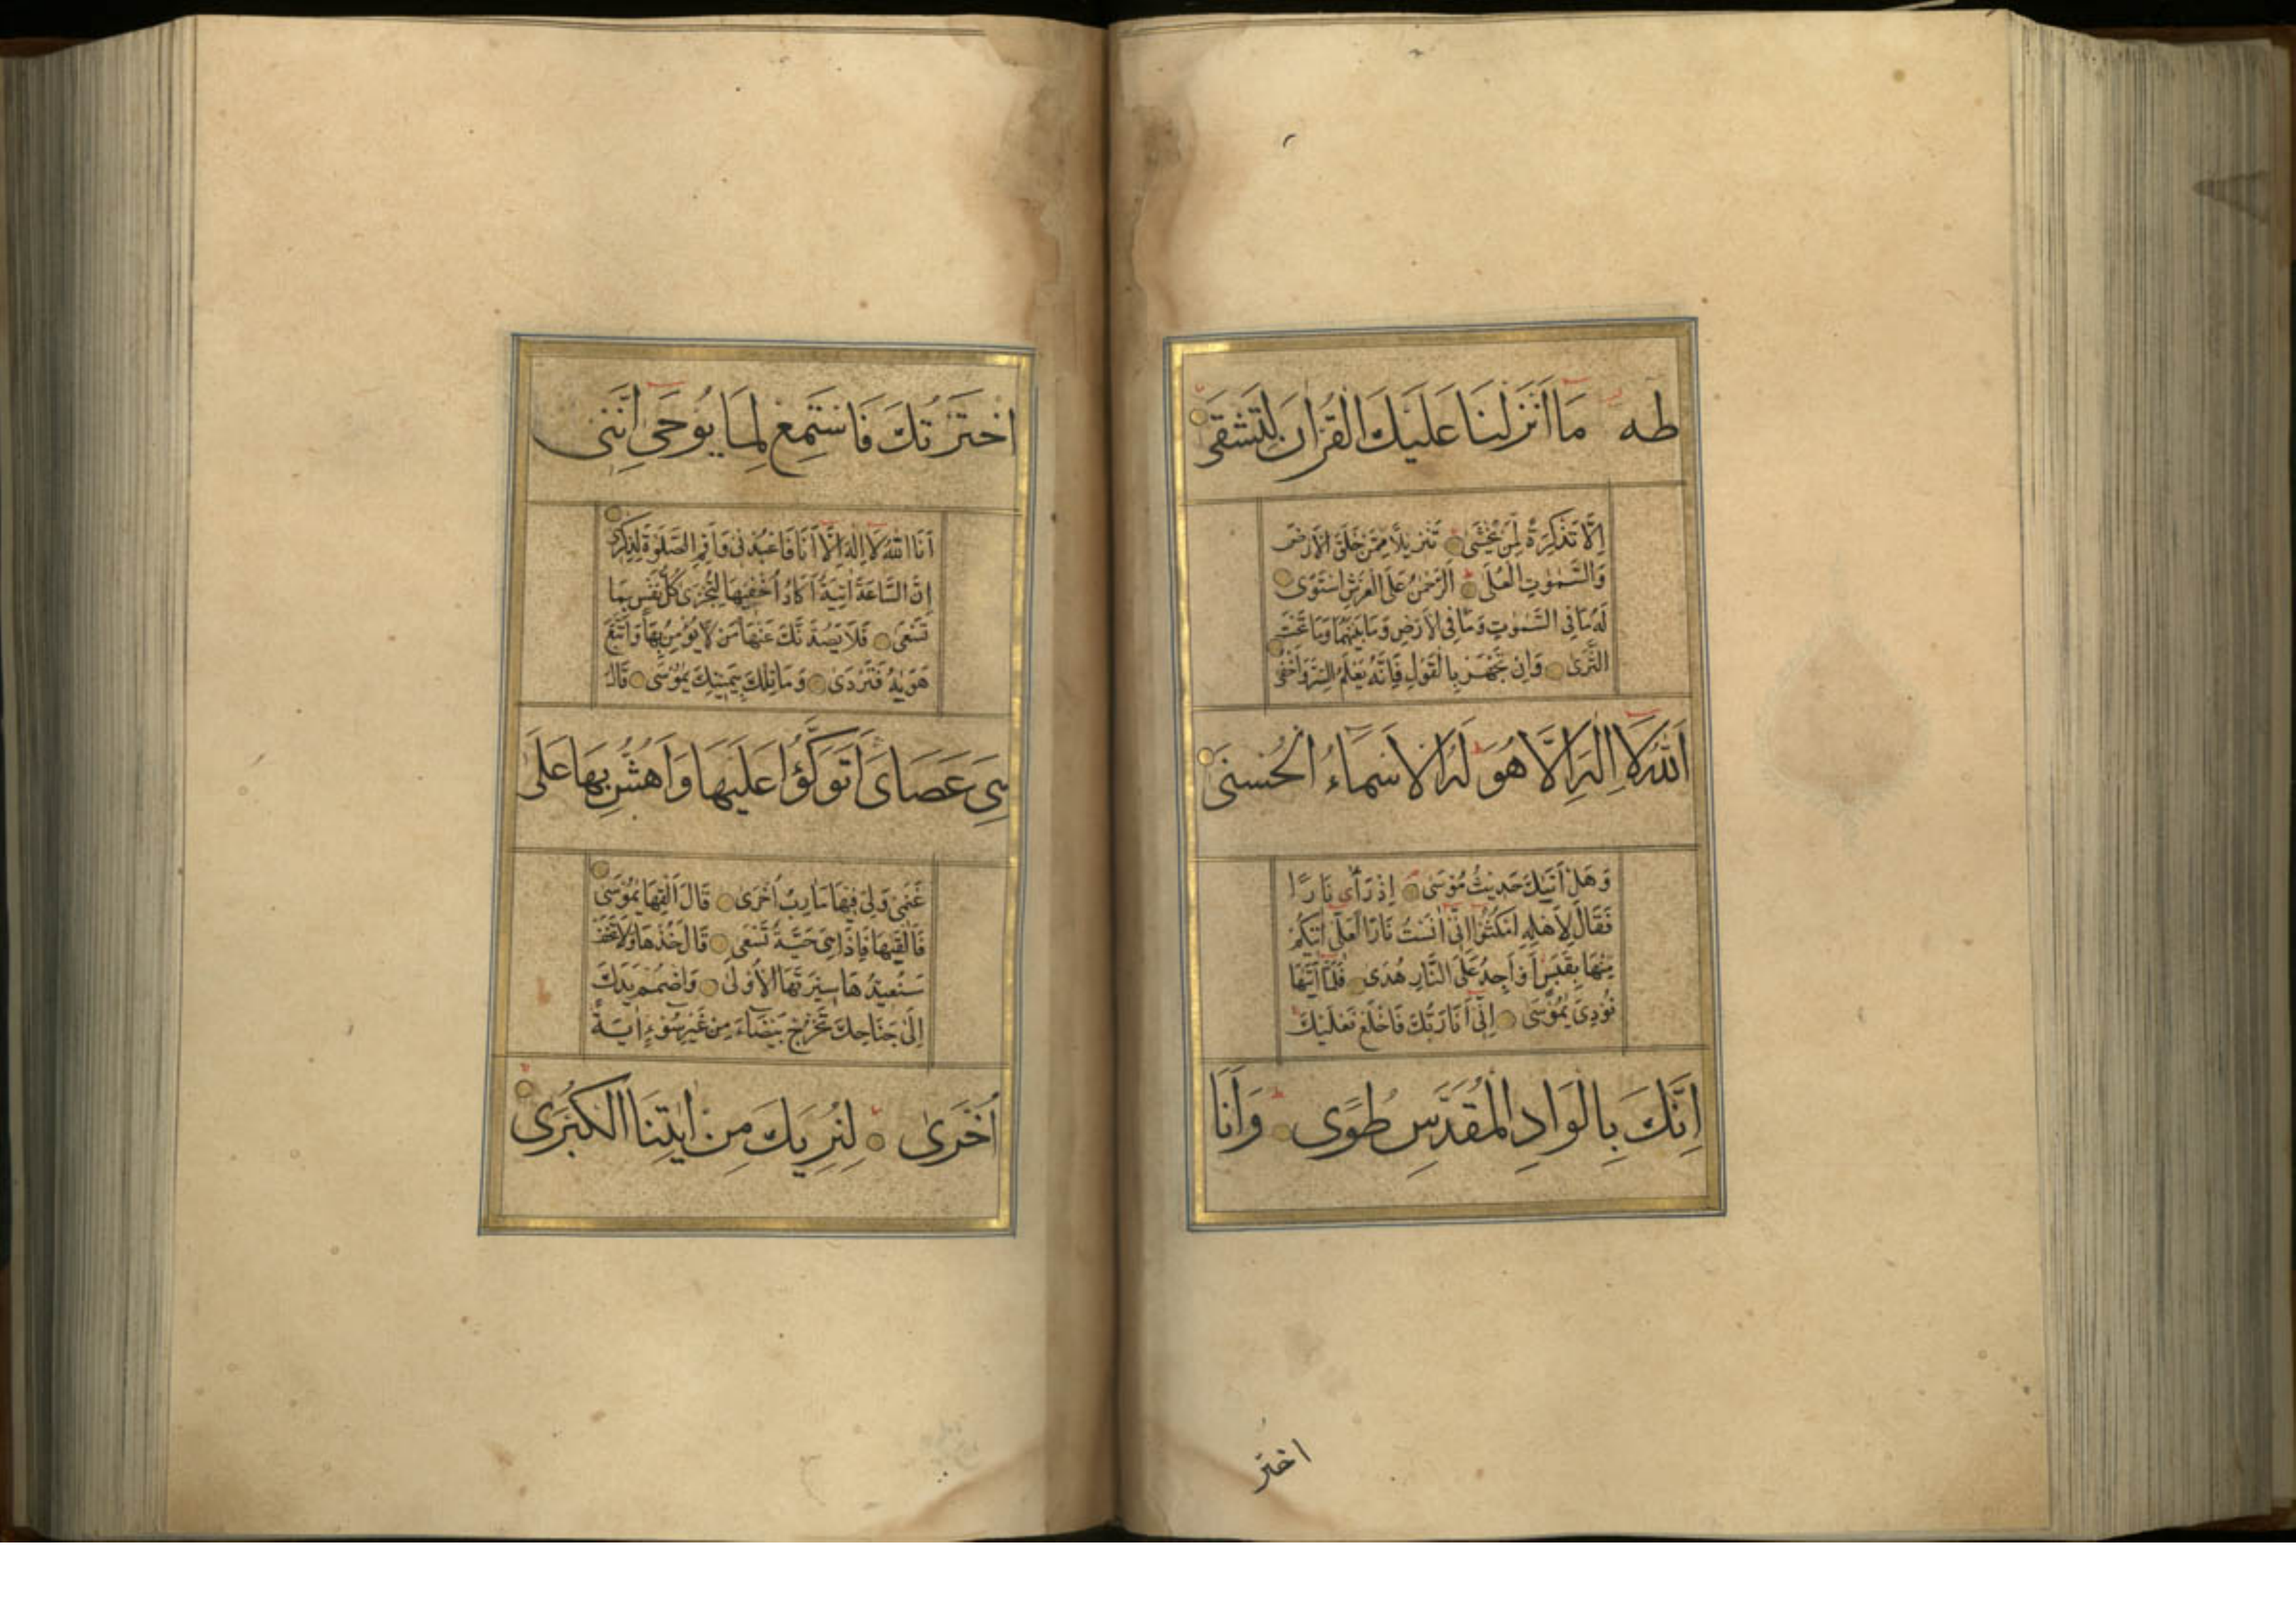 طه مَا أَنْزَلْنَا عَلَيْكَ الْقُرْاٰنَ لِتَشْقٰى
اِلَّا تَذْكِرَةً لِمَنْ يَخْشٰى تَنْزِيلًا مِمَّنْ خَلَقَ الْاَرْضَ
وَالسَّمٰوٰتِ الْعُلٰى اَلرَّحْمٰنُ عَلَى الْعَرْشِ اسْتَوٰى
لَهُ مَا فِى السَّمٰوٰتِ وَمَا فِى الْاَرْضِ وَمَا بَيْنَهُمَا وَمَا تَحْتَ
الثَّرٰى وَاِنْ تَجْهَرْ بِالْقَوْلِ فَاِنَّهُ يَعْلَمُ السِّرَّ وَاَخْفٰى
اَللّٰهُ لَا اِلٰهَ اِلَّا هُوَ لَهُ الْاَسْمَاءُ الْحُسْنٰى
وَهَلْ اَتٰيكَ حَدِيثُ مُوْسٰى اِذْ رَاٰى نَارًا
فَقَالَ لِاَهْلِهِ امْكُثُوْا اِنِّى اٰنَسْتُ نَارًا لَعَلِّى اٰتِيكُمْ
مِنْهَا بِقَبَسٍ اَوْ اَجِدُ عَلَى النَّارِ هُدًى فَلَمَّا اَتٰيهَا
نُوْدِىَ يٰمُوْسٰى اِنِّى اَنَا رَبُّكَ فَاخْلَعْ نَعْلَيْكَ
اِنَّكَ بِالْوَادِ الْمُقَدَّسِ طُوًى وَاَنَا
اختر
اخْتَرْتُكَ فَاسْتَمِعْ لِمَا يُوْحٰى اِنَّنِى
اَنَا اللّٰهُ لَا اِلٰهَ اِلَّا اَنَا فَاعْبُدْنِى وَاَقِمِ الصَّلٰوةَ لِذِكْرِى
اِنَّ السَّاعَةَ اٰتِيَةٌ اَكَادُ اُخْفِيهَا لِتُجْزٰى كُلُّ نَفْسٍ بِمَا
تَسْعٰى فَلَا يَصُدَّنَّكَ عَنْهَا مَنْ لَا يُؤْمِنُ بِهَا وَاتَّبَعَ
هَوٰيهُ فَتَرْدٰى وَمَا تِلْكَ بِيَمِينِكَ يٰمُوْسٰى قَالَ
هِىَ عَصَاىَ اَتَوَكَّؤُا عَلَيْهَا وَاَهُشُّ بِهَا عَلٰى
غَنَمِى وَلِىَ فِيهَا مَاٰرِبُ اُخْرٰى قَالَ اَلْقِهَا يٰمُوْسٰى
فَاَلْقٰيهَا فَاِذَا هِىَ حَيَّةٌ تَسْعٰى قَالَ خُذْهَا وَلَا تَخَفْ
سَنُعِيدُهَا سِيرَتَهَا الْاُوْلٰى وَاضْمُمْ يَدَكَ
اِلٰى جَنَاحِكَ تَخْرُجْ بَيْضَاءَ مِنْ غَيْرِ سُوْءٍ اٰيَةً
اُخْرٰى لِنُرِيَكَ مِنْ اٰيٰتِنَا الْكُبْرٰى